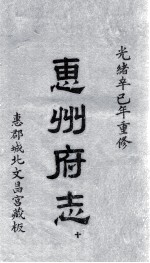 光緒辛巳年重修
惠州府志
十
惠郡城北文昌宮藏板